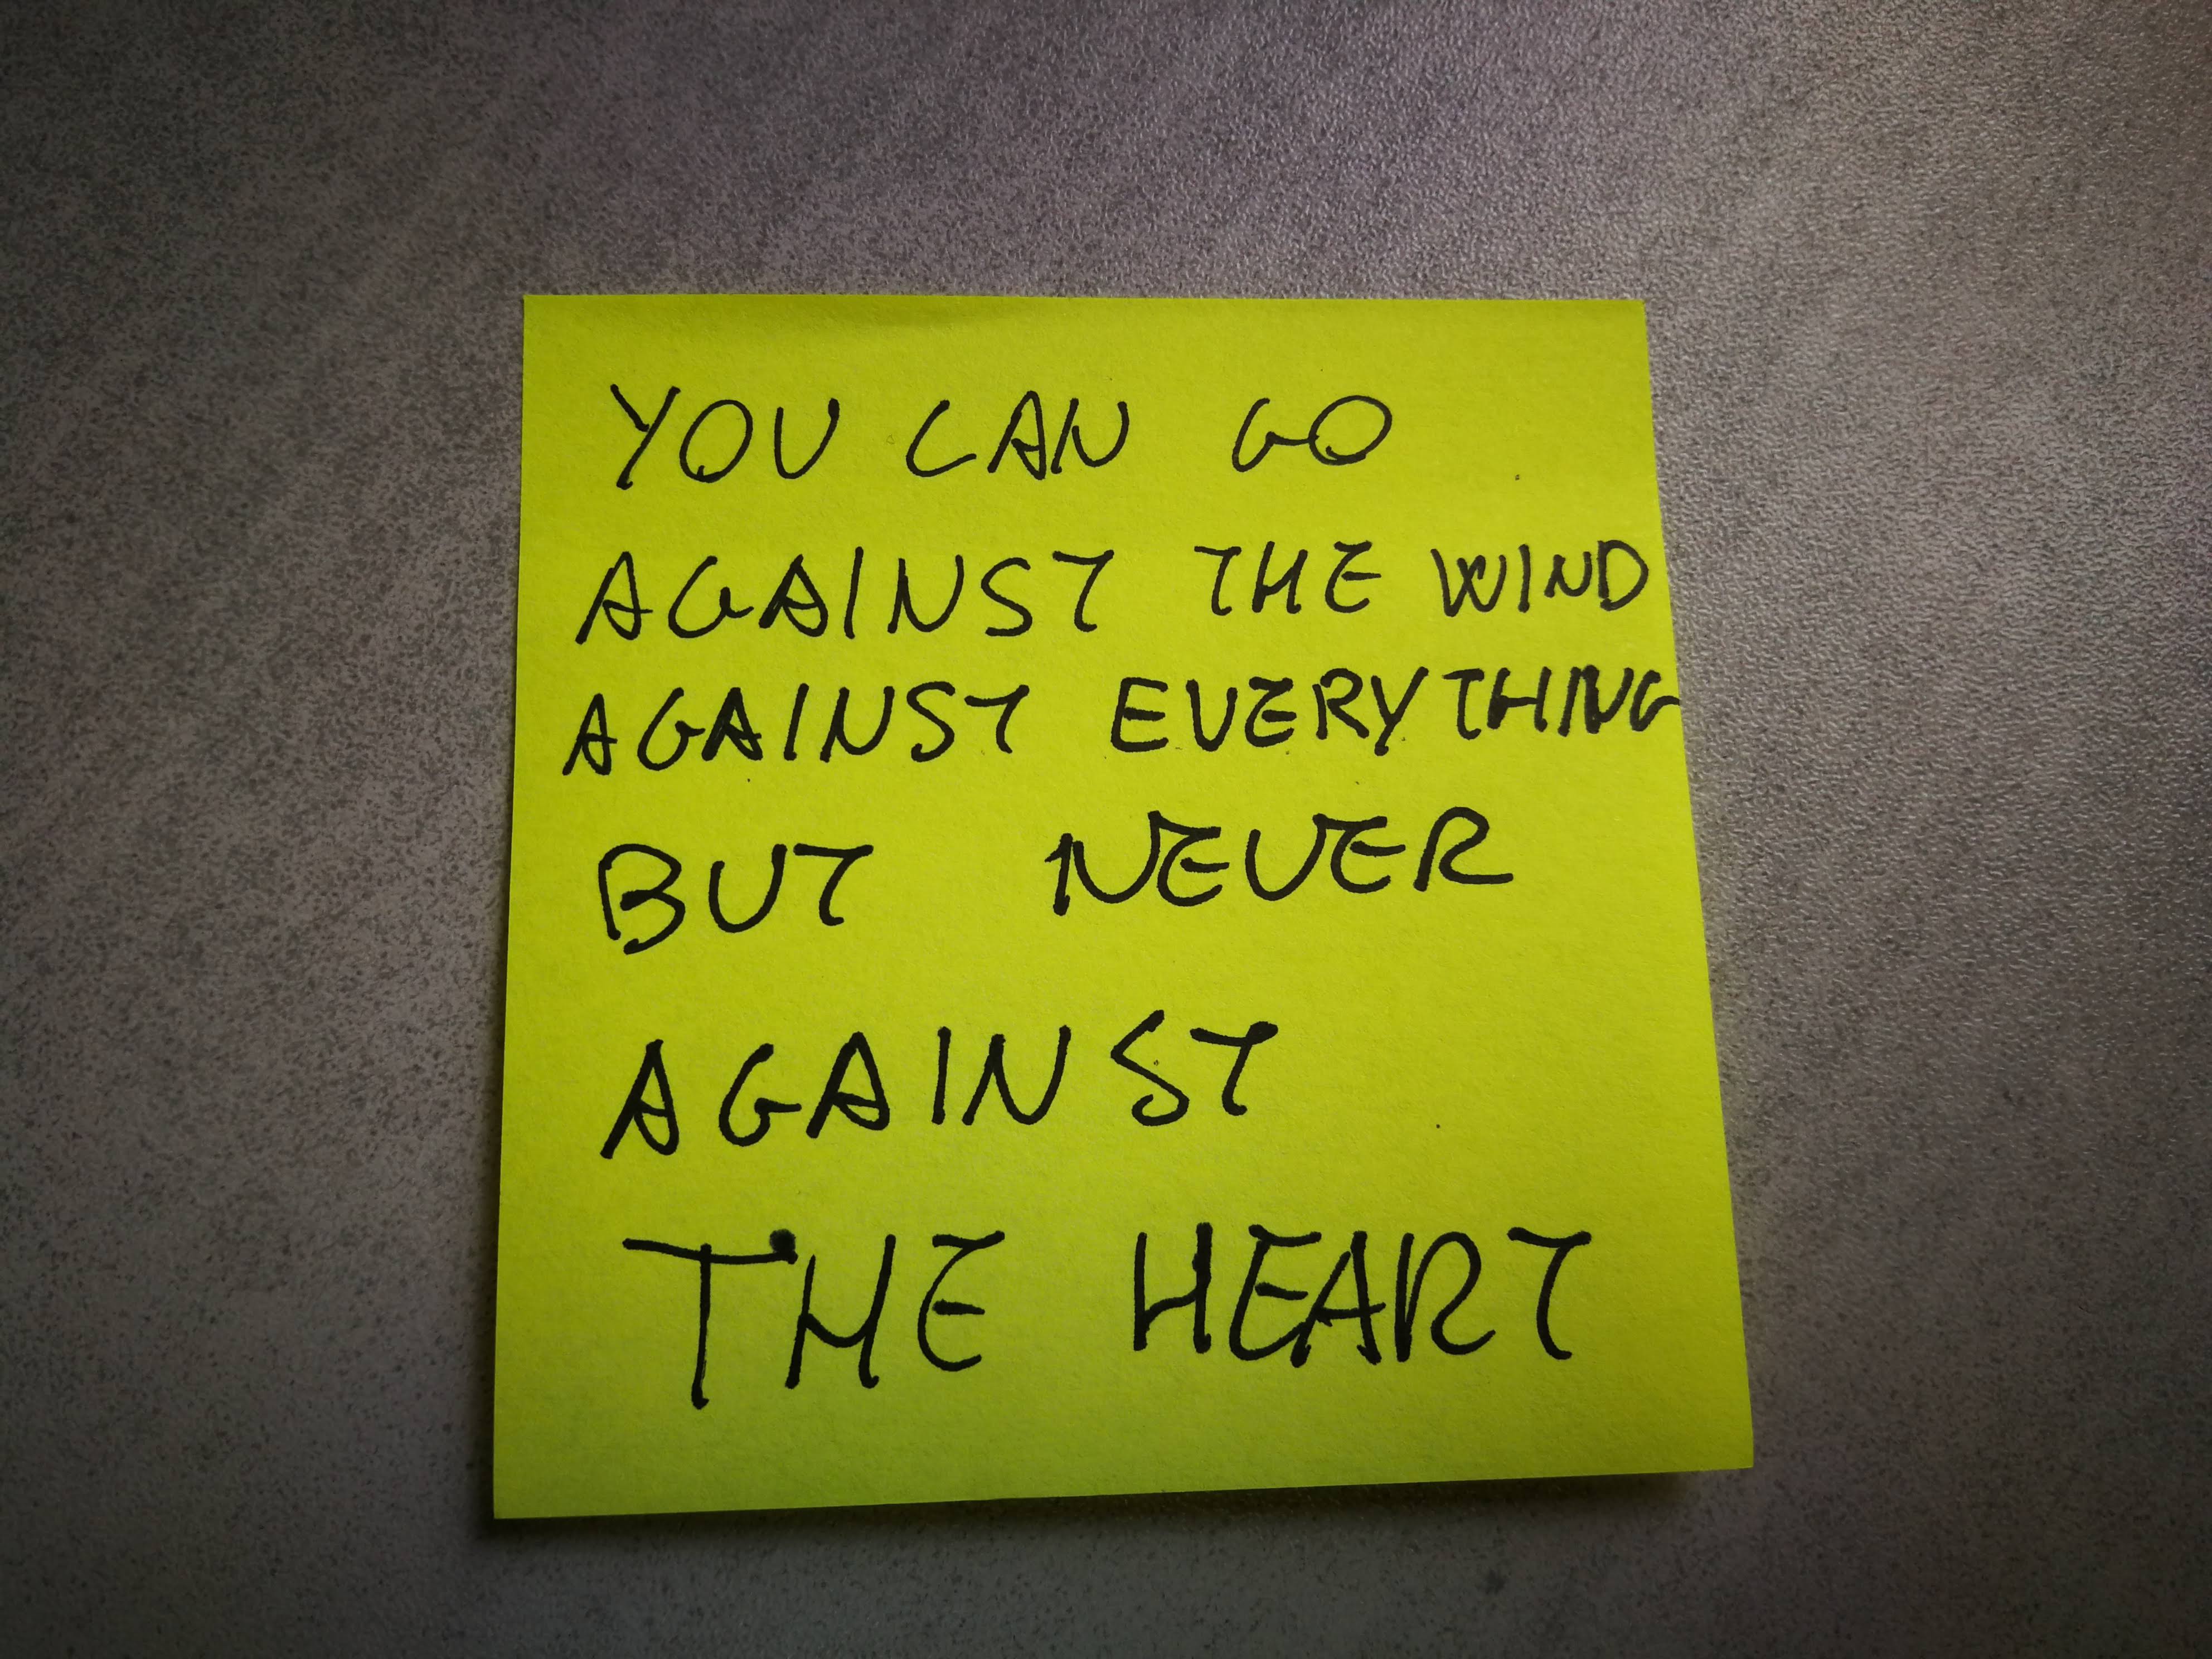 YOU CAN GO
AGAINST THE WIND
AGAINST EVERYTHING
BUT NEVER
AGAINST
THE HEART